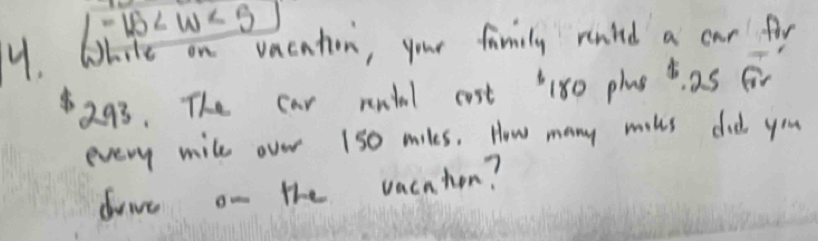 -13 < w < 5
14. While on vacation, your family rented a car for
$293. The car rental cost $180 plus $.25 for
every mile over 150 miles. How many miles did you
drive on the vacation?